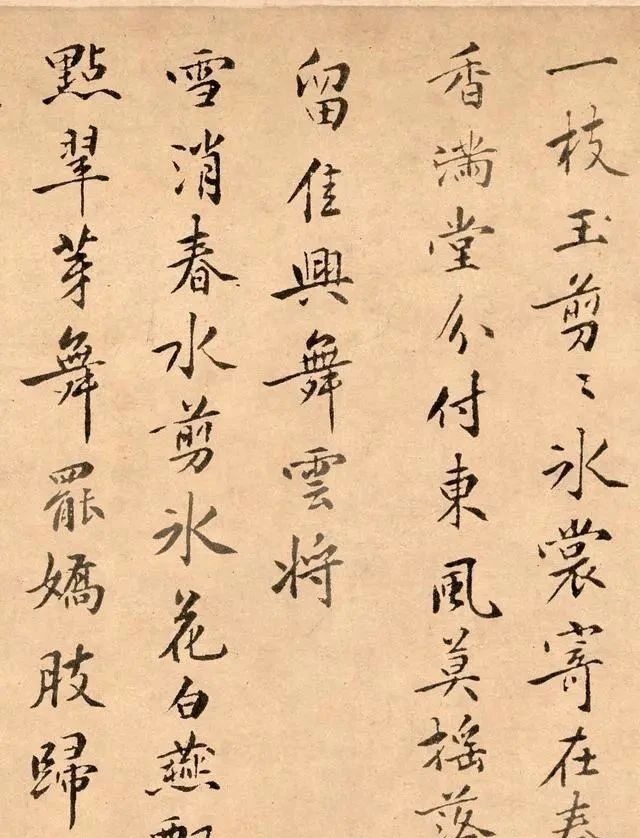 一枝玉剪〻氷裳寄在春
香滿堂分付東風莫搖落
留佳興舞雲將
雪消春水剪氷花白燕
點翠芽舞罷嬌肢歸